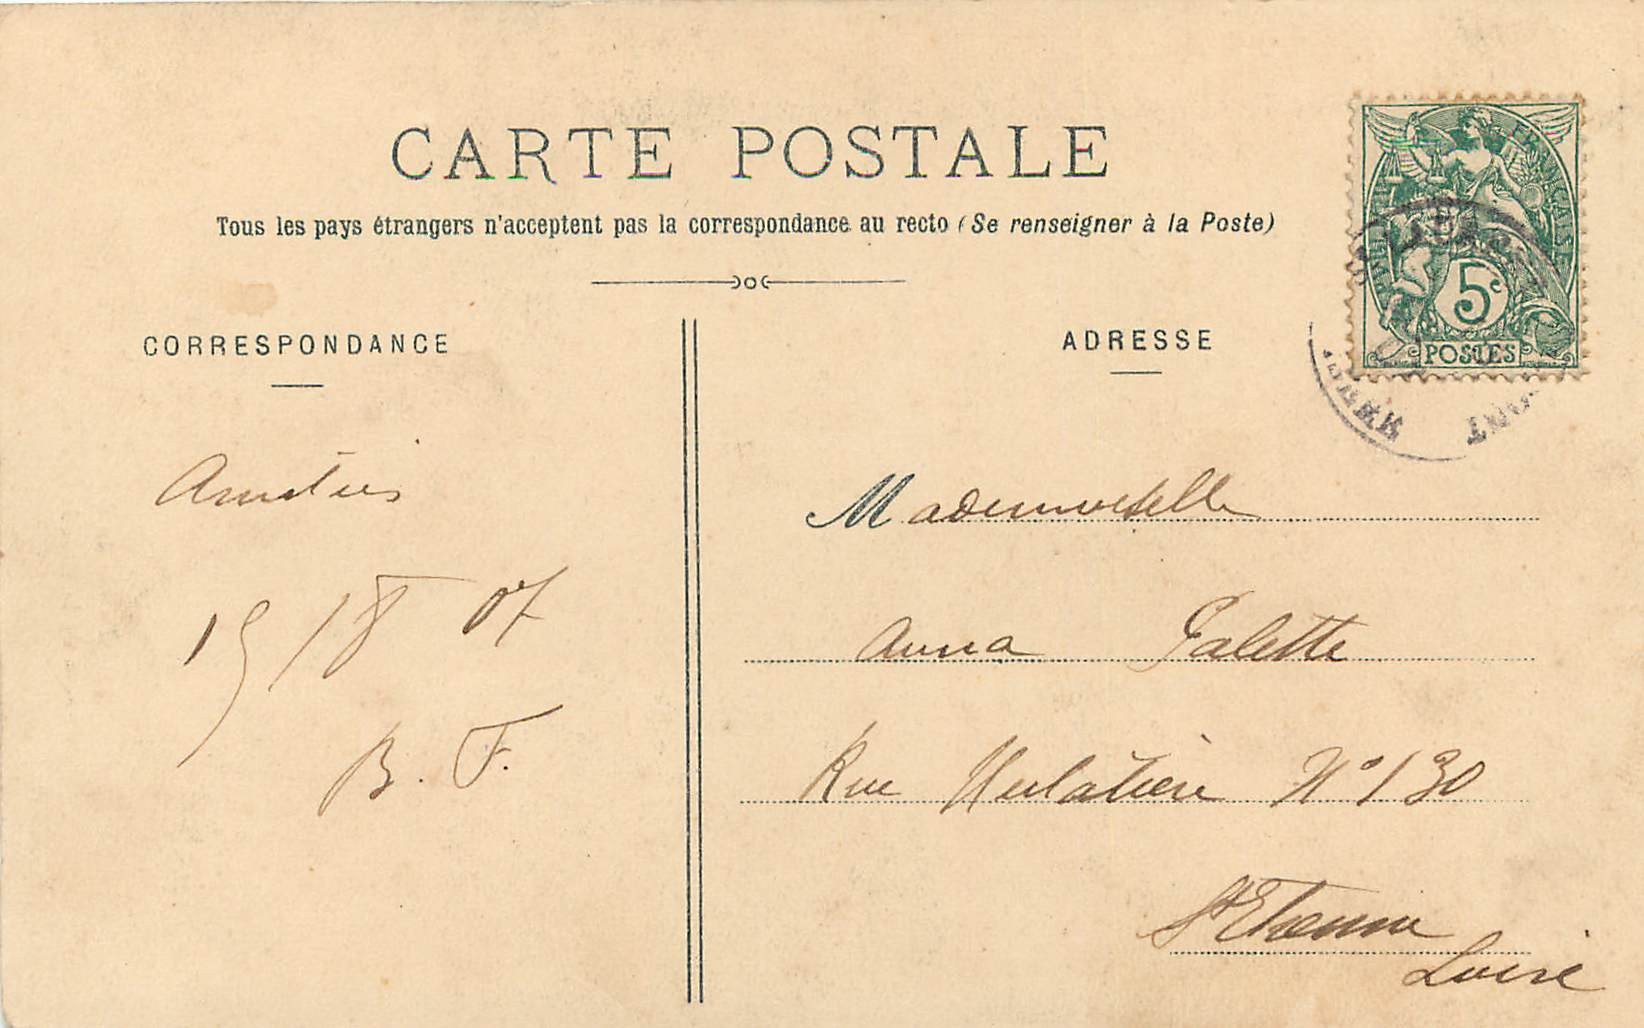 CARTE POSTALE
Tous les pays étrangers n'acceptent pas la correspondance au recto (Se renseigner à la Poste)
CORRESPONDANCE
Amitiés
15/8 07
B. F.
ADRESSE
Mademoiselle
Anna Falette
Rue Mulatière N° 130
St Etienne
Loire
RÉPUBLIQUE FRANÇAISE
5c
POSTES